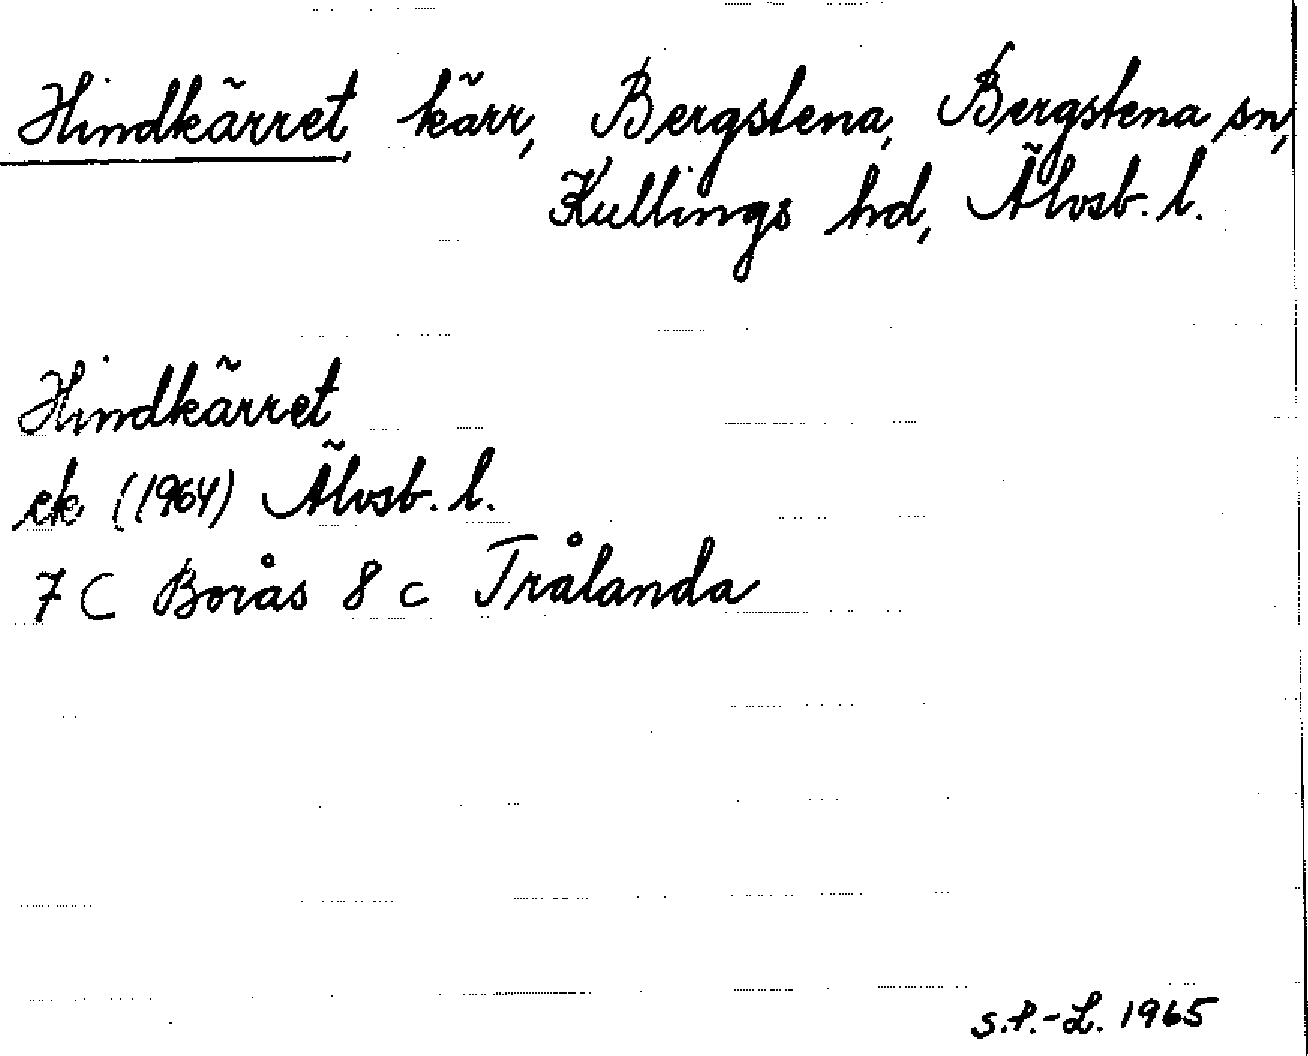 Hindkärret, kärr, Bergstena, Bergstena sn,
Kullings hd, Älvsb. l.
Hindkärret
ek (1964) Älvsb. l.
7 C Borås 8 c Trålanda
S.P.-L. 1965